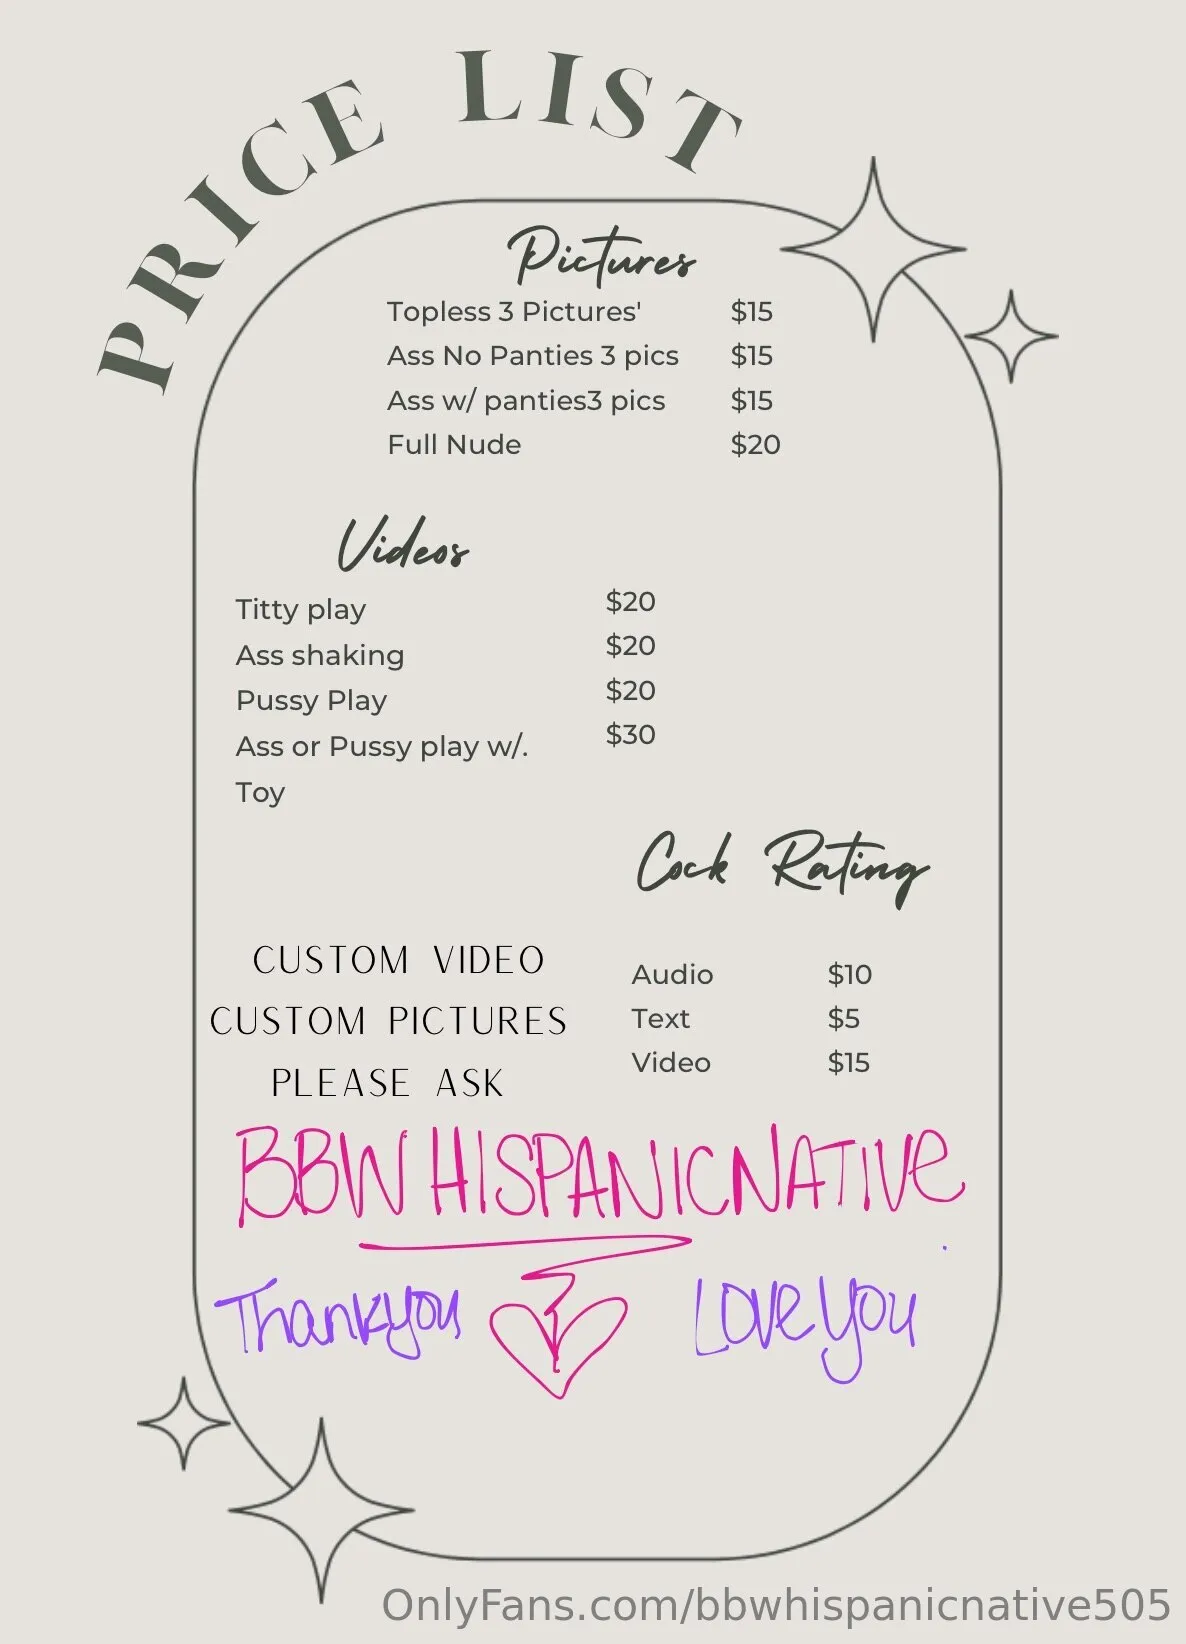 PRICE LIST
Pictures
Topless 3 Pictures' $15
Ass No Panties 3 pics $15
Ass w/ panties3 pics $15
Full Nude $20
Videos
Titty play $20
Ass shaking $20
Pussy Play $20
Ass or Pussy play w/. $30
Toy
Cock Rating
CUSTOM VIDEO
CUSTOM PICTURES
PLEASE ASK
Audio $10
Text $5
Video $15
BBW HISPANICNATIVE
Thankyou LOVE YOU
OnlyFans.com/bbwhispanicnative505